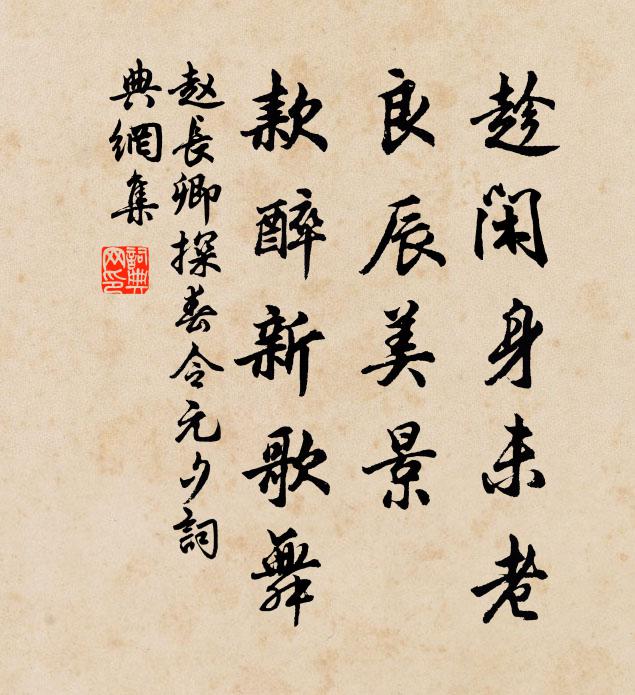 趁閑身未老
良辰美景
款醉新歌舞
赵長卿探春令元夕詞
典網集
詞典
网印